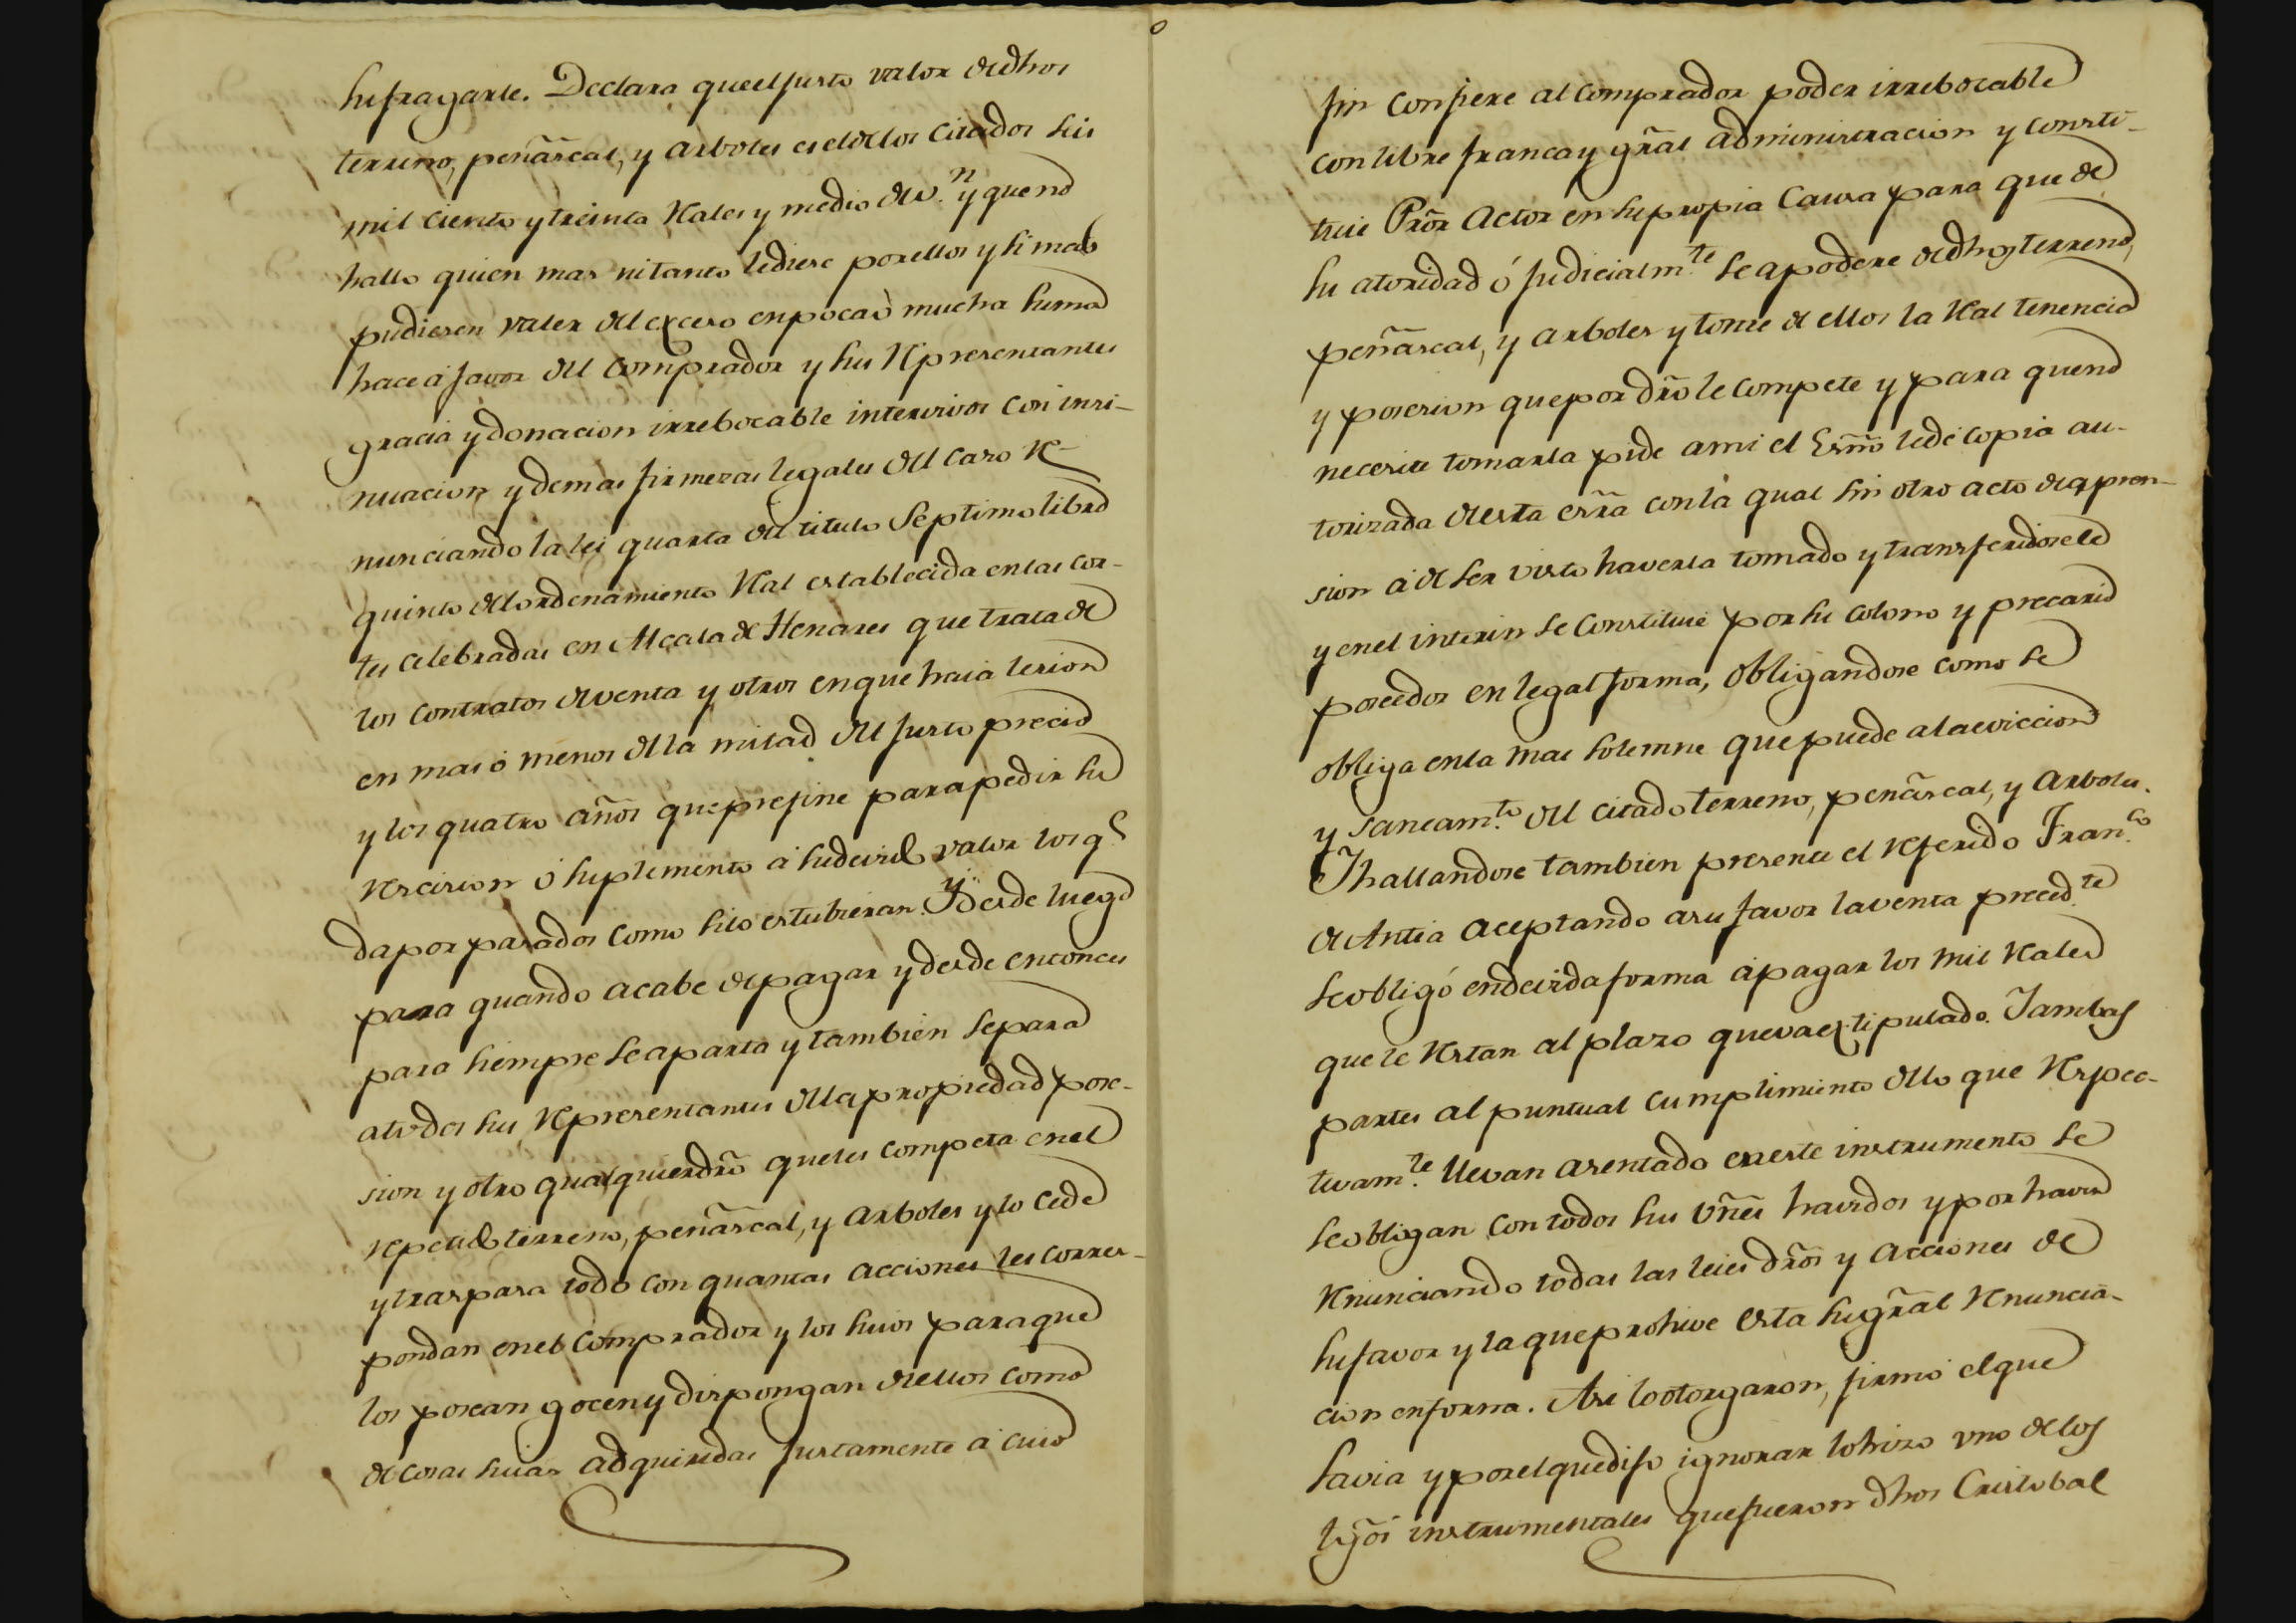 sufragarle. Declara que el justo valor de dhos
terreno, peñascal, y arboles es el de los citados seis
mil ciento y treinta Rales y medio de v.n y que no
hallo quien mas ni tanto le diese por ellos y si mas
pudiesen valer del exceso en poca ò mucha suma
hace á favor del comprador y sus Representantes
gracia y donacion irrebocable intervivos con insi-
nuacion y demas firmezas legales del caso Re-
nunciando la lei quarta del titulo septimo libro
quinto del ordenamiento Real establecida en las cor-
tes celebradas en Alcala de Henares que trata de
los contratos de venta y otros en que haia lesion
en mas ó menos de la mitad del justo precio
y los quatro años que prefine para pedir su
Rescision ó suplemento á su devido valor los q.s
da por pasados como si lo estubieran. Y desde luego
para quando acabe de pagar y desde entonces
para siempre se aparta y tambien separa
a todos sus Representantes de la propiedad pose-
sion y otro qualquier dro que les competa en el
Repetido terreno, peñascal, y arboles y lo cede
y traspasa todo con quantas acciones les corres-
pondan en el comprador y los suios para que
los posean gocen y dispongan de ellos como
de cosas suias adquiridas justamente á cuio
fin confiere al comprador poder irrebocable
con libre franca y gral administracion y consti-
tuie Pror actor en su propia causa para que de
su atoridad ó judicialm.te se apodere de dhos terreno,
peñascal, y arboles y tome de ellos la Real tenencia
y posesion que por dro le compete y para que no
necesite tomarla pide a mi el Esno le dé copia au-
torizada de esta esra con la qual sin otro acto de apren-
sion á de ser visto haverla tomado y transferidosele
y en el interin se constituie por su colono y precario
poseedor en legal forma, obligandose como se
obliga en la mas solemne que puede a la eviccion
y saneam.to del citado terreno, peñascal, y arboles.
Y hallandose tambien presente el Referido Fran.co
de Antia aceptando a su favor la venta preced.te
se obligó en devida forma á pagar los mil Rales
que le Restan al plazo que va extipulado. Y ambas
partes al puntual cumplimiento de lo que Respec-
tivam.te llevan asentado en este instrumento se
se obligan con todos sus vnes havidos y por haver
Renunciando todas las leies dros y acciones de
su favor y la que prohive esta su gral Renuncia-
cion en forma. Asi lo otorgaron, firmó el que
savia y por el que dijo ignorar lo hizo uno de los
tgos instrumentales que fueron dhos Cristobal